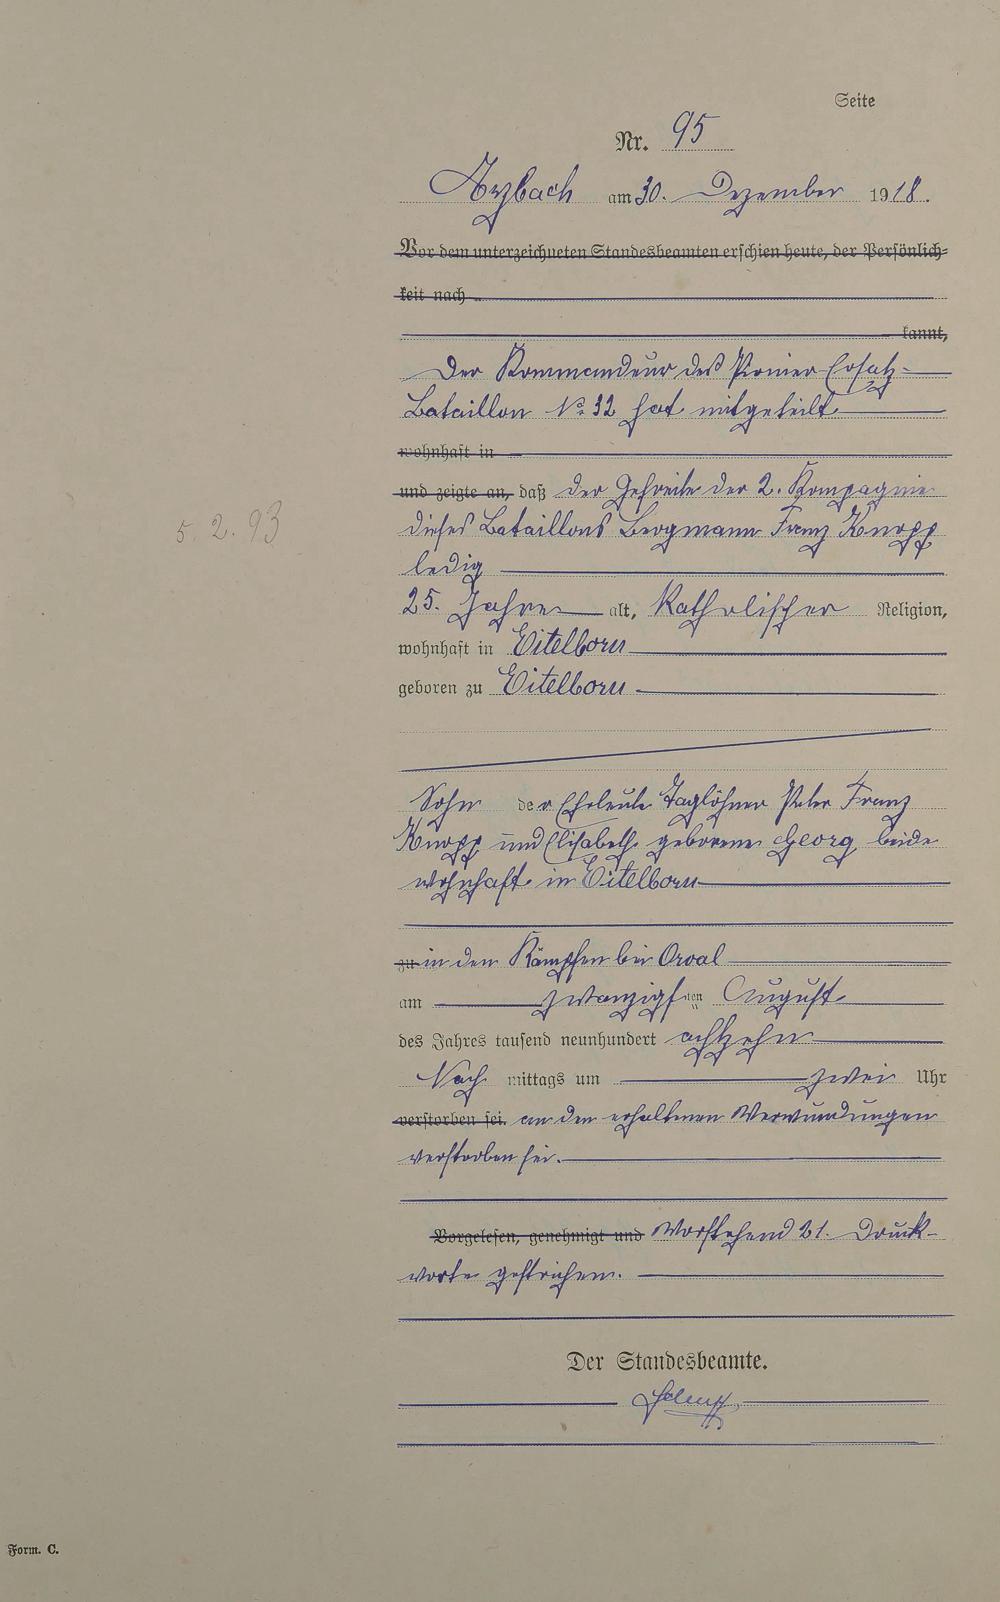 Seite
Nr. 95
Arzbach am 30. Dezember 1918.
Vor dem unterzeichneten Standesbeamten erschien heute, der Persönlich-
keit nach
kannt,
Der Kommandeur des Pionier Ersatz-
Bataillon No 32 hat mitgeteilt
wohnhaft in
und zeigte an, daß der Gefreite der 2. Kompagnie
dieses Bataillons Bergmann Franz Knopp
5. 2. 93
ledig
25. Jahre alt, Katholischer Religion,
wohnhaft in Eitelborn
geboren zu Eitelborn
Sohn der Eheleute Taglöhner Peter Franz
Knopp und Elisabeth geborene Georg beide
wohnhaft in Eitelborn
zu in den Kämpfen bei Orval
am zwanzigsten August
des Jahres tausend neunhundert achtzehn
Nach mittags um zwei Uhr
verstorben sei. an den erhaltenen Verwundungen
verstorben sei.
Vorgelesen, genehmigt und Vorstehend 21. Druck-
worte gestrichen.
Der Standesbeamte.
Form. C.